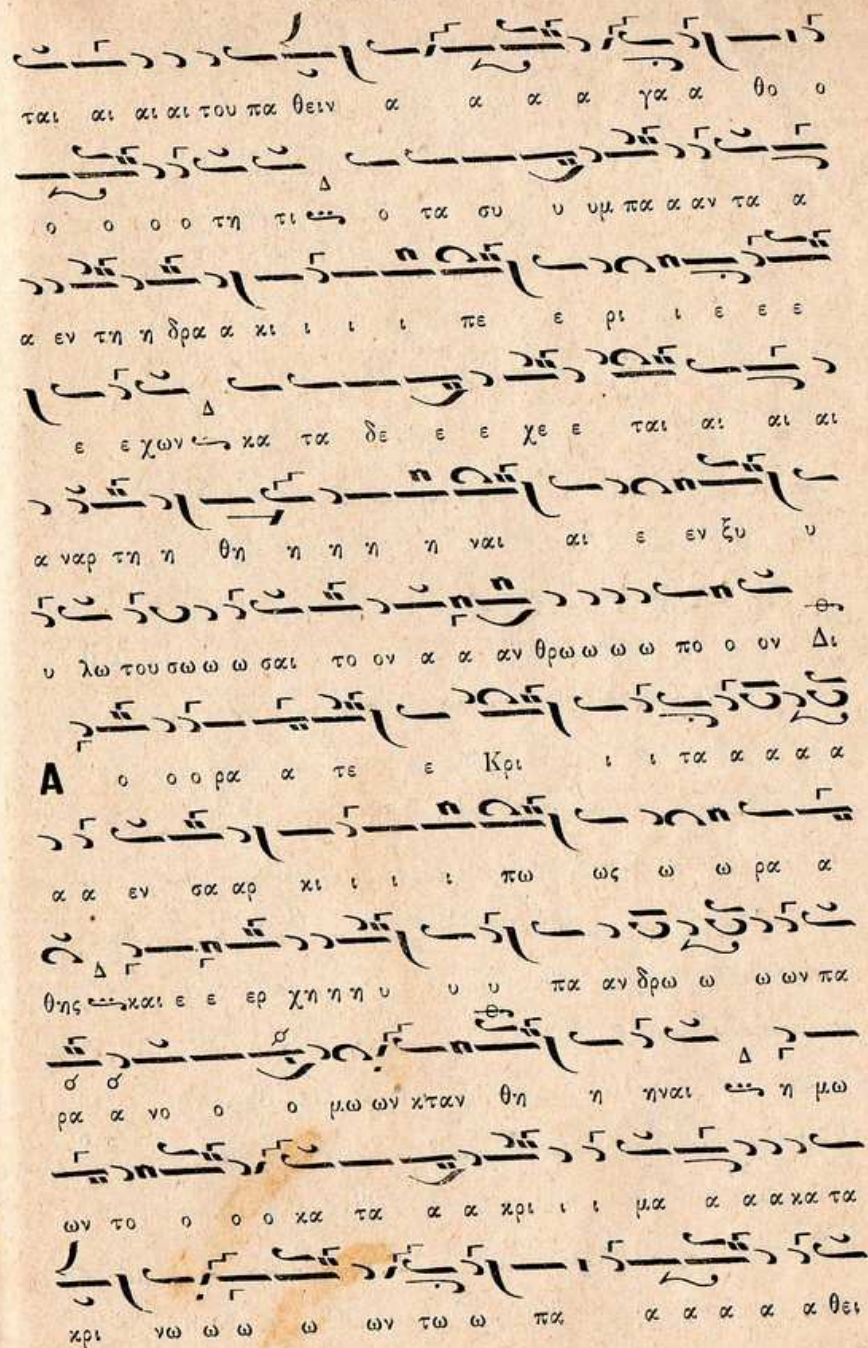 ται αι αι αι του πα θειν α α α α γα α θο ο
ο ο ο ο τη τι Δ ο τα συ υ υμ πα α αν τα α
α εν τη η δρα α κι ι ι ι πε ε ρι ι ε ε ε
ε ε χων Δ κα τα δε ε ε χε ε ται αι αι αι
α ναρ τη η θη η η η η ναι αι ε εν ξυ υ
υ λω του σω ω ω σαι το ον α α αν θρω ω ω ω πο ο ον Δι
Α ο ο ο ρα α τε ε Κρι ι ι τα α α α α
α α εν σα αρ κι ι ι ι πω ως ω ω ρα α
θης Δ και ε ε ερ χη η η υ υ υ πα αν δρω ω ω ων πα
ρα α νο ο ο μω ων κ'ταν θη η ηναι Δ η μω
ων το ο ο ο κα τα α α κρι ι ι μα α α α κα τα
κρι νω ω ω ω ων τω ω πα α α α α α θει